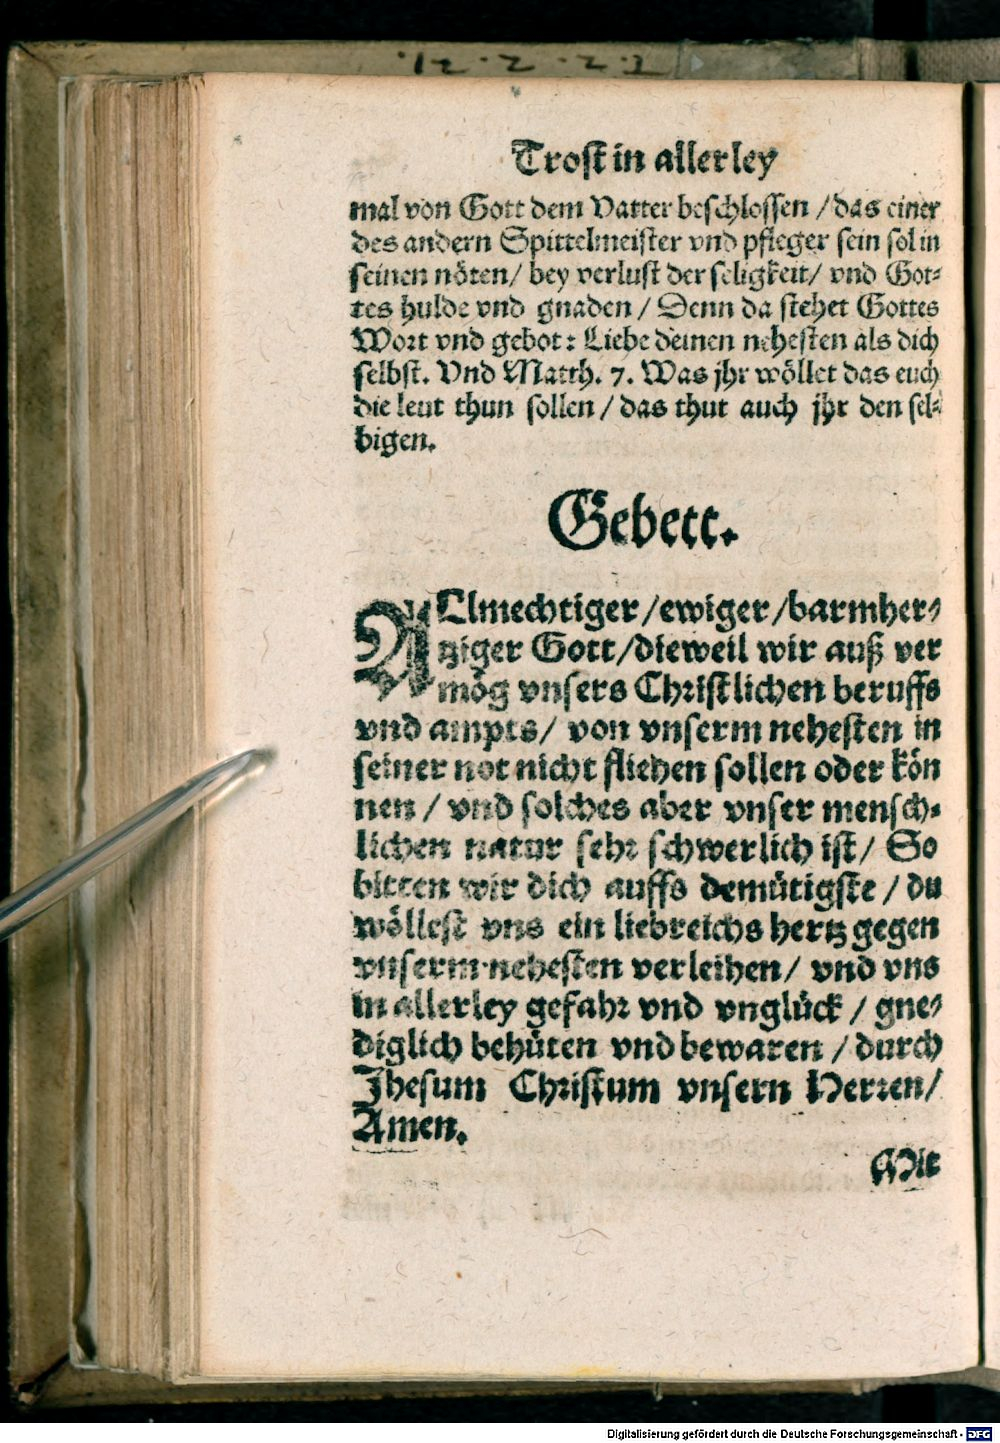 Trost in allerley
mal von Gott dem Vatter beschlossen / das einer
des andern Spittelmeister vnd pfleger sein sol in
seinen nöten / bey verlust der seligkeit / vnd Got⸗
tes hulde vnd gnaden / Denn da stehet Gottes
Wort vnd gebot: Liebe deinen nehesten als dich
selbst. Vnd Matth. 7. Was jhr wöllet das euch
die leut thun sollen / das thut auch jhr den sel⸗
bigen.
Gebett.
ALlmechtiger / ewiger / barmher⸗
tziger Gott / dieweil wir auß ver
mög vnsers Christlichen beruffs
vnd ampts / von vnserm nehesten in
seiner not nicht fliehen sollen oder kön
nen / vnd solches aber vnser mensch⸗
lichen natur sehr schwerlich ist / So
bitten wir dich auffs demütigste / du
wöllest vns ein liebreichs hertz gegen
vnserm nehesten verleihen / vnd vns
in allerley gefahr vnd vnglück / gne⸗
diglich behüten vnd bewaren / durch
Jhesum Christum vnsern Herren /
Amen.
Mit
Digitalisierung gefördert durch die Deutsche Forschungsgemeinschaft - DFG